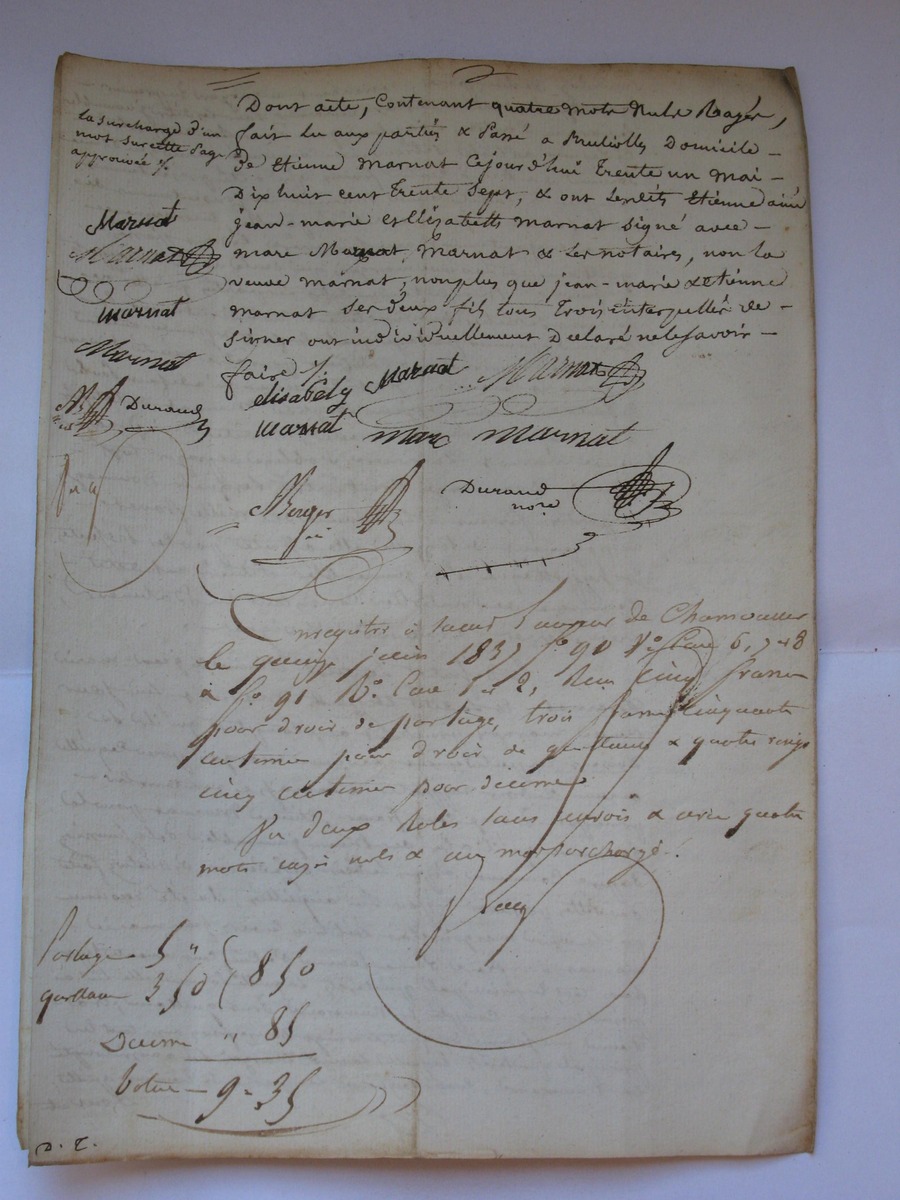 La surcharge d'un
mot sur cette Page
approuvée ./.
Marnat
Marnat
marnat
Marnat
Durand
Dont acte, Contenant quatre mots Nuls Rayés,
fait Lu aux parties & Passé a Domicile
De Etienne Marnat Cejourd'hui Trente un Mai
Dix huit cent Trente Sept, & ont Lesdits Etienne ainé
jean-marie et Elizabeth marnat Signé avec
marc Marnat, Marnat & Les notaires, non la
veuve marnat, nonplus que jean-marie & etienne
marnat Ses deux fils tous Trois interpellés de
Signer ont individuellement Declaré ne le Savoir
faire ./.
elisabety Marnat Marnat
marnat marc marnat
Berger
Durand
nore
Enregistré à
le quinze juin 1837 fo. 90 Vo. Case 6, 7 et 8
& fo. 91 Ro. Case 1 et 2, Reçu cinq francs
pour droit de partage, trois francs cinquante
centimes pour droit de quittance & quatre vingt
cinq centimes pour décime
deux Roles sans renvois & avec quatre
mots rayés nuls & un mot surchargé.
Partage 5 "
quittance 3 50
8 50
Decime " 85
Total 9 = 35
D. T.